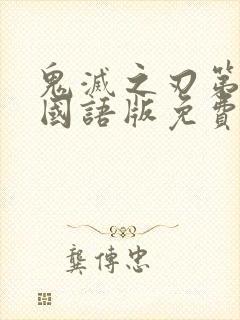 鬼滅之刃第
國語版免費
龔傳忠